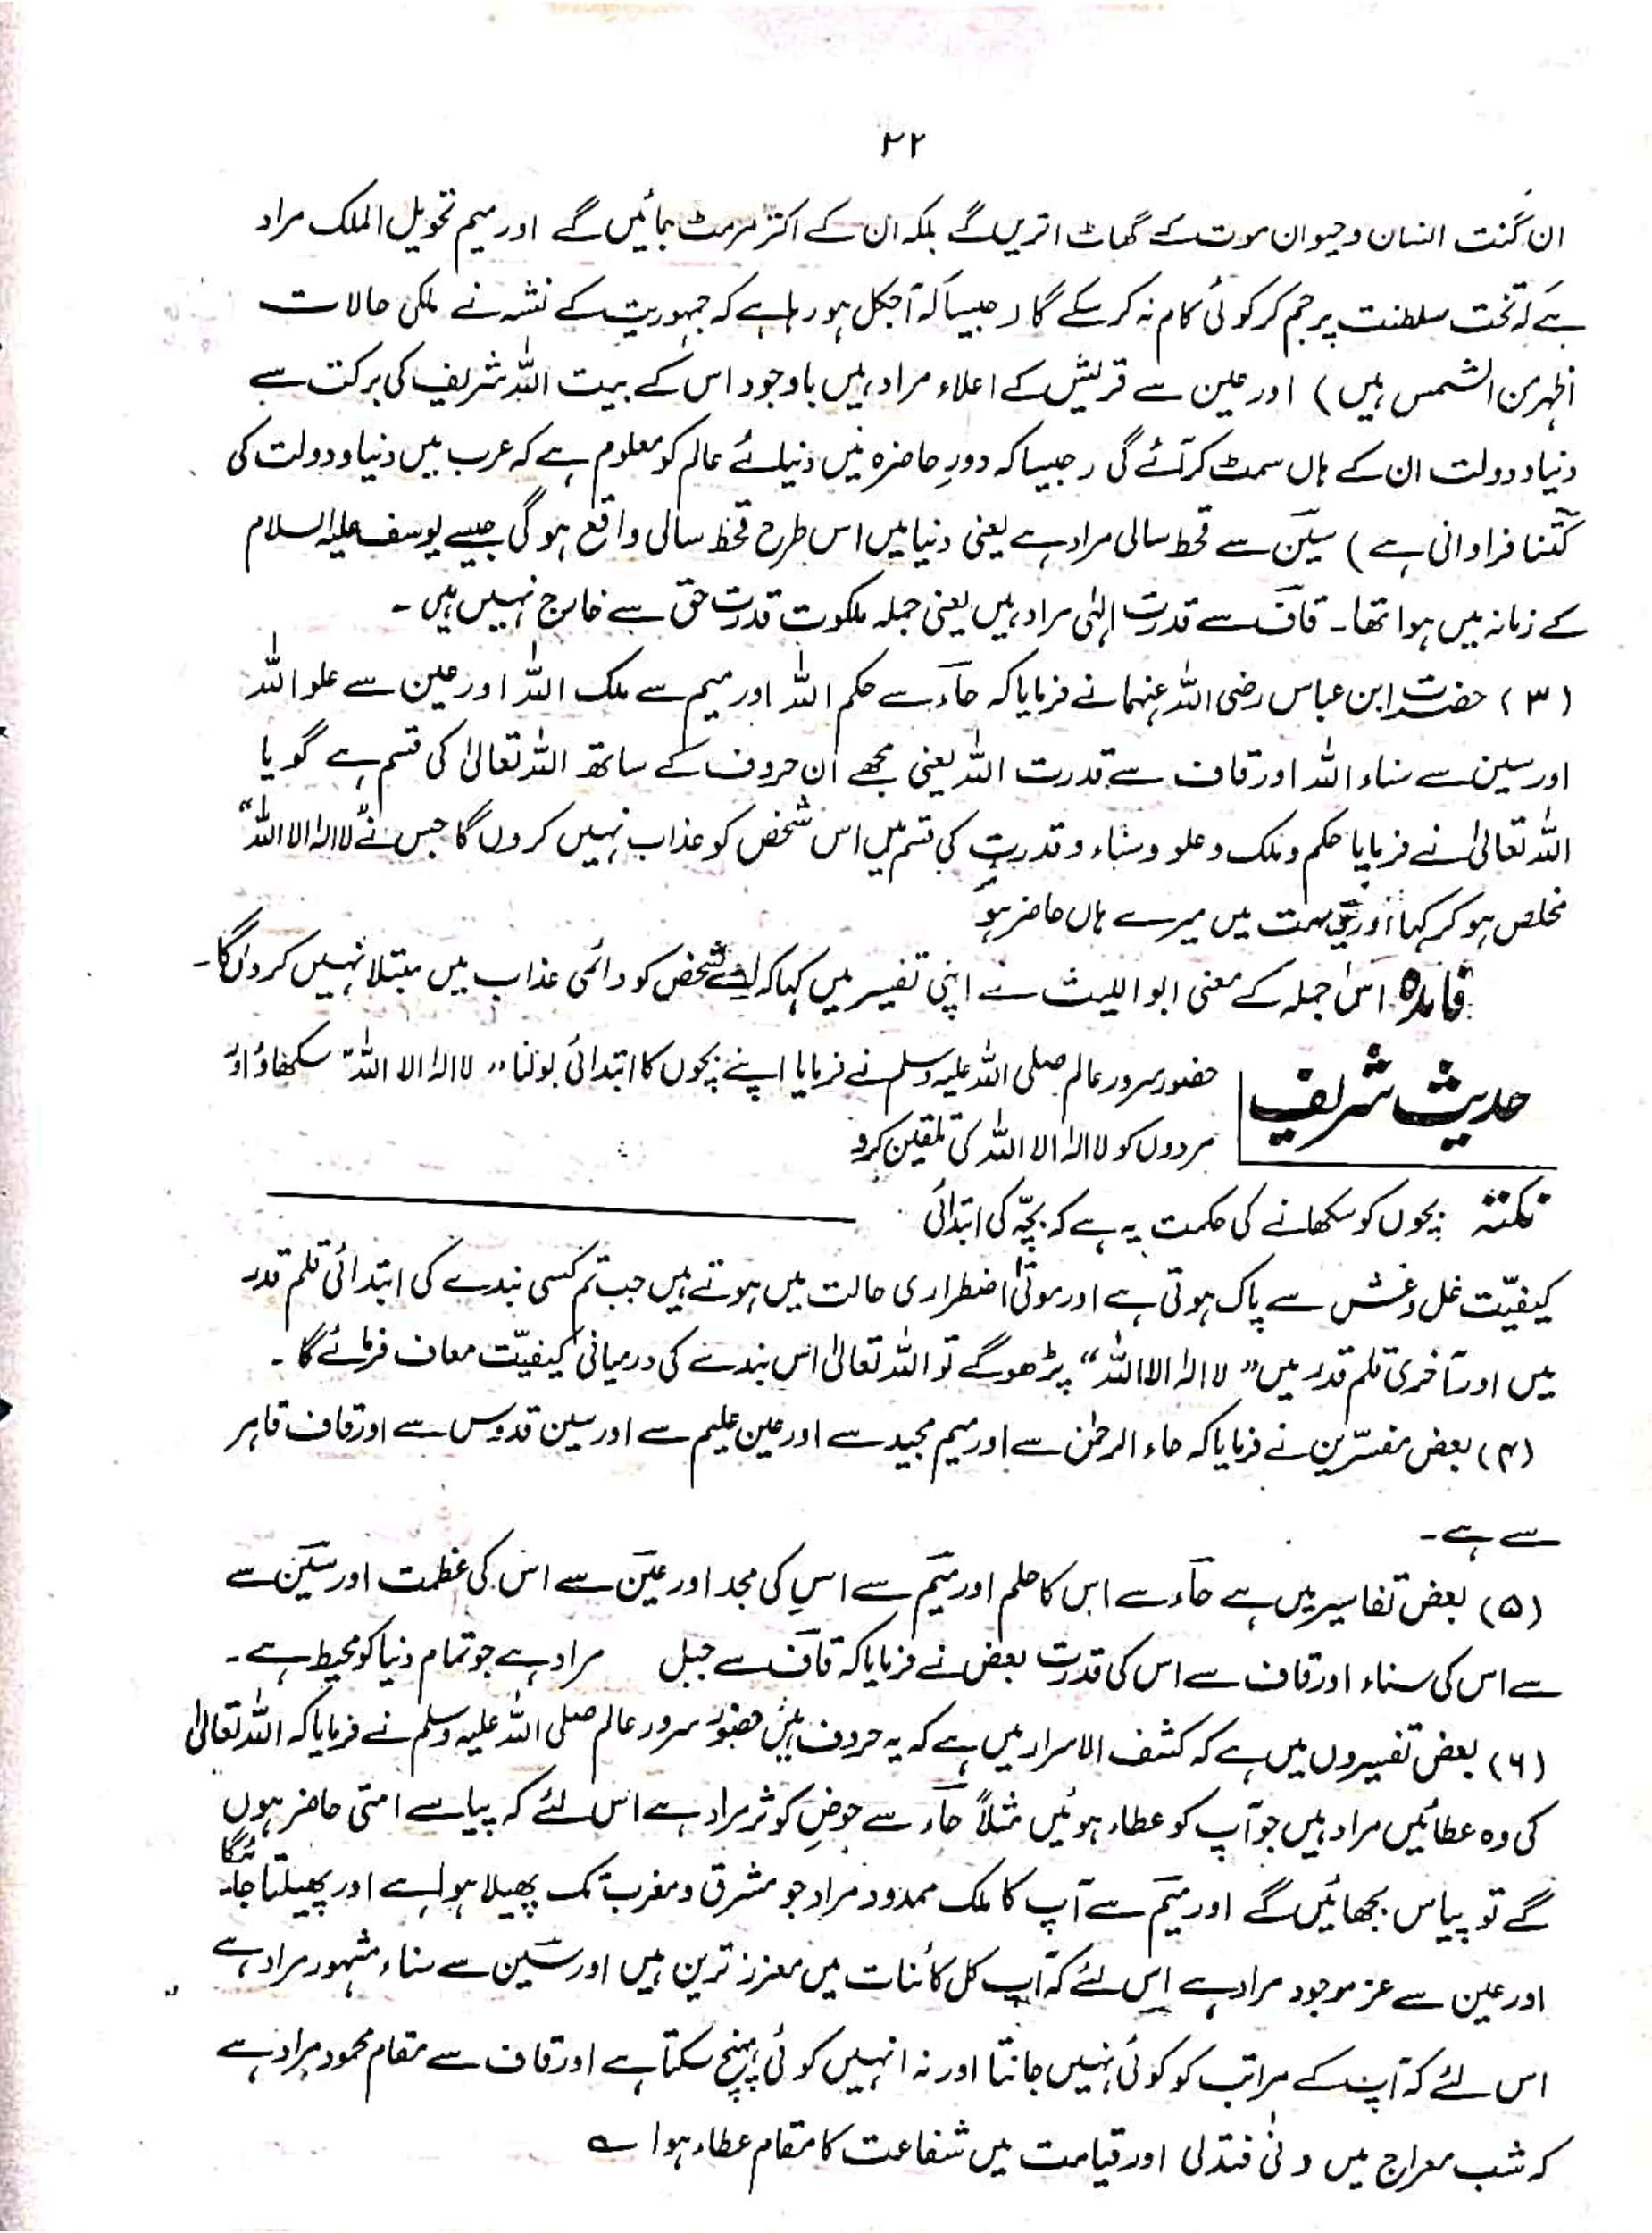 ۲۲
ان گنت انسان و حیوان موت کے گھاٹ اتریں گے بلکہ ان کے اکثر مرمٹ جائیں گے اور میم تحویل الملک مراد
ہے کہ تخت سلطنت پر جم کر کوئی کام نہ کر سکے گا (جیسا کہ آجکل ہو رہا ہے کہ جمہوریت کے نشہ نے ملکی حالات
اظہر من الشمس ہیں) اور عین سے قریش کے اعلاء مراد ہیں باوجود اس کے بیت اللہ شریف کی برکت سے
دنیا و دولت ان کے ہاں سمٹ کر آئے گی (جیسا کہ دورِ حاضرہ میں دنیائے عالم کو معلوم ہے کہ عرب میں دنیا و دولت کی
کتنا فراوانی ہے) سینؔ سے قحط سالی مراد ہے یعنی دنیا میں اس طرح قحط سالی واقع ہو گی جیسے یوسف علیہ السلام
کے زمانہ میں ہوا تھا۔ قافؔ سے قدرت الٰہی مراد ہیں یعنی جملہ ملکوت قدرت حق سے خارج نہیں ہیں ۔
(۳) حضرت ابن عباس رضی اللہ عنہما نے فرمایا کہ حآء سے حکم اللہ اور میم سے ملک اللہ اور عین سے علو اللہ
اور سین سے سناء اللہ اور قاف سے قدرت اللہ یعنی مجھے ان حروف کے ساتھ اللہ تعالیٰ کی قسم ہے گویا
اللہ تعالیٰ نے فرمایا حکم و ملک و علو و سناء و قدرت کی قسم میں اس شخص کو عذاب نہیں کروں گا جس نے "لا الہ الا اللہ"
مخلص ہو کر کہا اور میں میرے ہاں حاضر ہو
فائدہ اس جملہ کے معنی ابو اللیث نے اپنی تفسیر میں کہا کہ ایسے شخص کو دائمی عذاب میں مبتلا نہیں کروں گا۔
حدیث شریف
حضور سرور عالم صلی اللہ علیہ وسلم نے فرمایا اپنے بچوں کا ابتدائی بولنا "لا الہ الا اللہ" سکھاؤ اور
مردوں کو لا الہ الا اللہ کی تلقین کرو
نکتہ بچوں کو سکھانے کی حکمت یہ ہے کہ بچّہ کی ابتدائی
کیفیّت غل و غش سے پاک ہوتی ہے اور موتیٰ اضطراری حالت میں ہوتے ہیں جب تم کسی بندے کی ابتدائی قلم قدر
میں اور آخری قلم قدر میں "لا الہ الا اللہ" پڑھو گے تو اللہ تعالیٰ اس بندے کی درمیانی کیفیّت معاف فرمائے گا ۔
(۴) بعض مفسّرین نے فرمایا کہ حاء الرحمٰن سے اور میم مجید سے اور عین علیم سے اور سین قدوس سے اور قاف قاہر
سے ہے ۔
(۵) بعض تفاسیر میں ہے حآء سے اس کا حلم اور میمؔ سے اس کی مجد اور عینؔ سے اس کی عظمت اور سینؔ سے
سے اس کی سناء اور قاف سے اس کی قدرت بعض نے فرمایا کہ قافؔ سے جبل مراد ہے جو تمام دنیا کو محیط ہے ۔
(۶) بعض تفسیروں میں ہے کہ کشف الاسرار میں ہے کہ یہ حروف ہیں حضور سرور عالم صلی اللہ علیہ وسلم نے فرمایا کہ اللہ تعالیٰ
کی وہ عطائیں مراد ہیں جو آپ کو عطاء ہوئیں مثلاً حآء سے حوضِ کوثر مراد ہے اس لئے کہ پیاسے امتی حاضر ہوں
گے تو پیاس بجھائیں گے اور میمؔ سے آپ کا ملک ممدود مراد جو مشرق و مغرب تک پھیلا ہوا ہے اور پھیلتا جائے گا
اور عین سے عز موجود مراد ہے اس لئے کہ آپ کل کائنات میں معزز ترین ہیں اور سینؔ سے سناء مشہور مراد ہے
اس لئے کہ آپ کے مراتب کو کوئی نہیں جانتا اور نہ انہیں کوئی پہنچ سکتا ہے اور قاف سے مقام محمود مراد ہے
کہ شب معراج میں دنیٰ فتدلی اور قیامت میں شفاعت کا مقام عطاء ہوا ؎